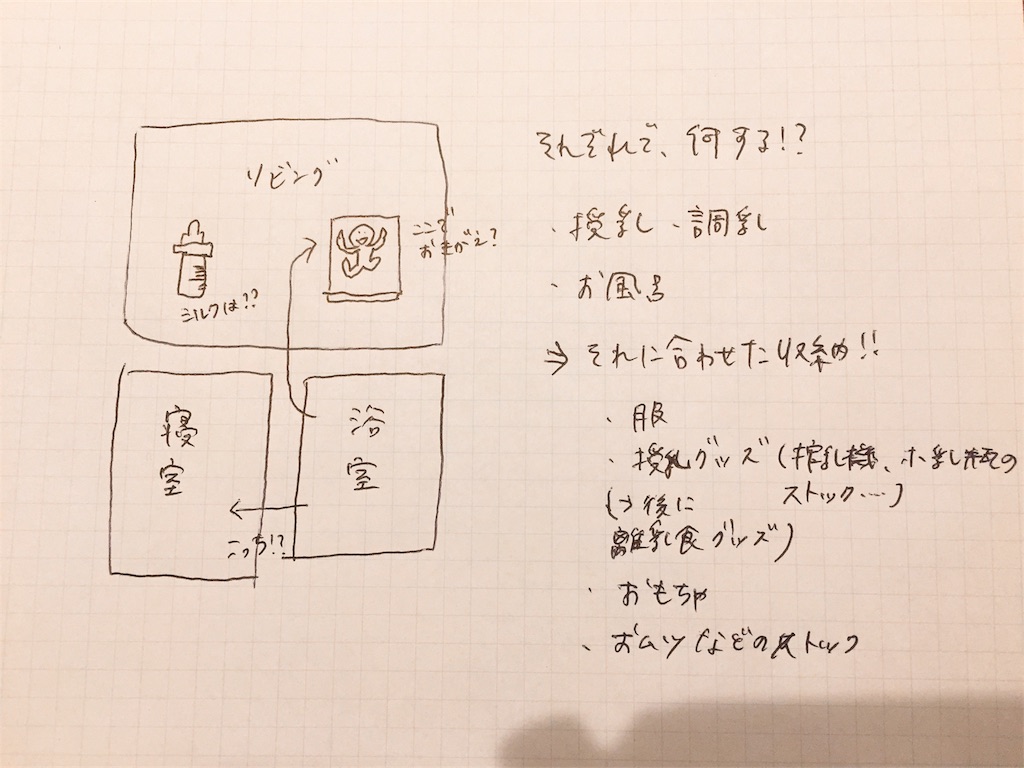 リビング
ここで
おきがえ?
ミルクは??
寝室
浴室
こっち!?
それぞれで、何する!?
・授乳・調乳
・お風呂
⇒ それに合わせた収納!!
・服
・授乳グッズ(搾乳機、ホ乳瓶の
ストック…)
(→後に
離乳食グッズ)
・おもちゃ
・おムツなどのストック